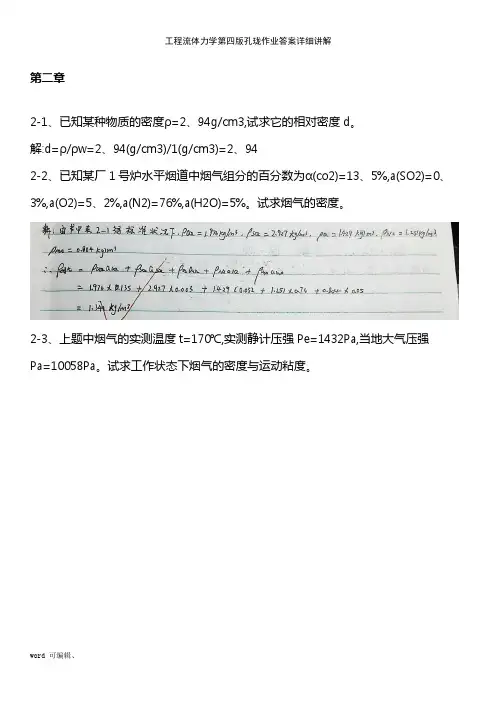 工程流体力学第四版孔珑作业答案详细讲解
第二章
2-1、已知某种物质的密度ρ=2、94g/cm3,试求它的相对密度d。
解:d=ρ/ρw=2、94(g/cm3)/1(g/cm3)=2、94
2-2、已知某厂1号炉水平烟道中烟气组分的百分数为α(co2)=13、5%,a(SO2)=0、
3%,a(O2)=5、2%,a(N2)=76%,a(H2O)=5%。试求烟气的密度。
解:由书中表2-1知标准状况下,ρco2=1.976kg/m³,ρso2=2.927kg/m³,ρo2=1.429kg/m³,ρN2=1.251kg/m³
ρH2O=0.804kg/m³
= 1.976×0.135 + 2.927×0.003 + 1.429×0.052 + 1.251×0.76 + 0.804×0.05
kg/m³
2-3、上题中烟气的实测温度t=170℃,实测静计压强Pe=1432Pa,当地大气压强
Pa=10058Pa。试求工作状态下烟气的密度与运动粘度。
word 可编辑、